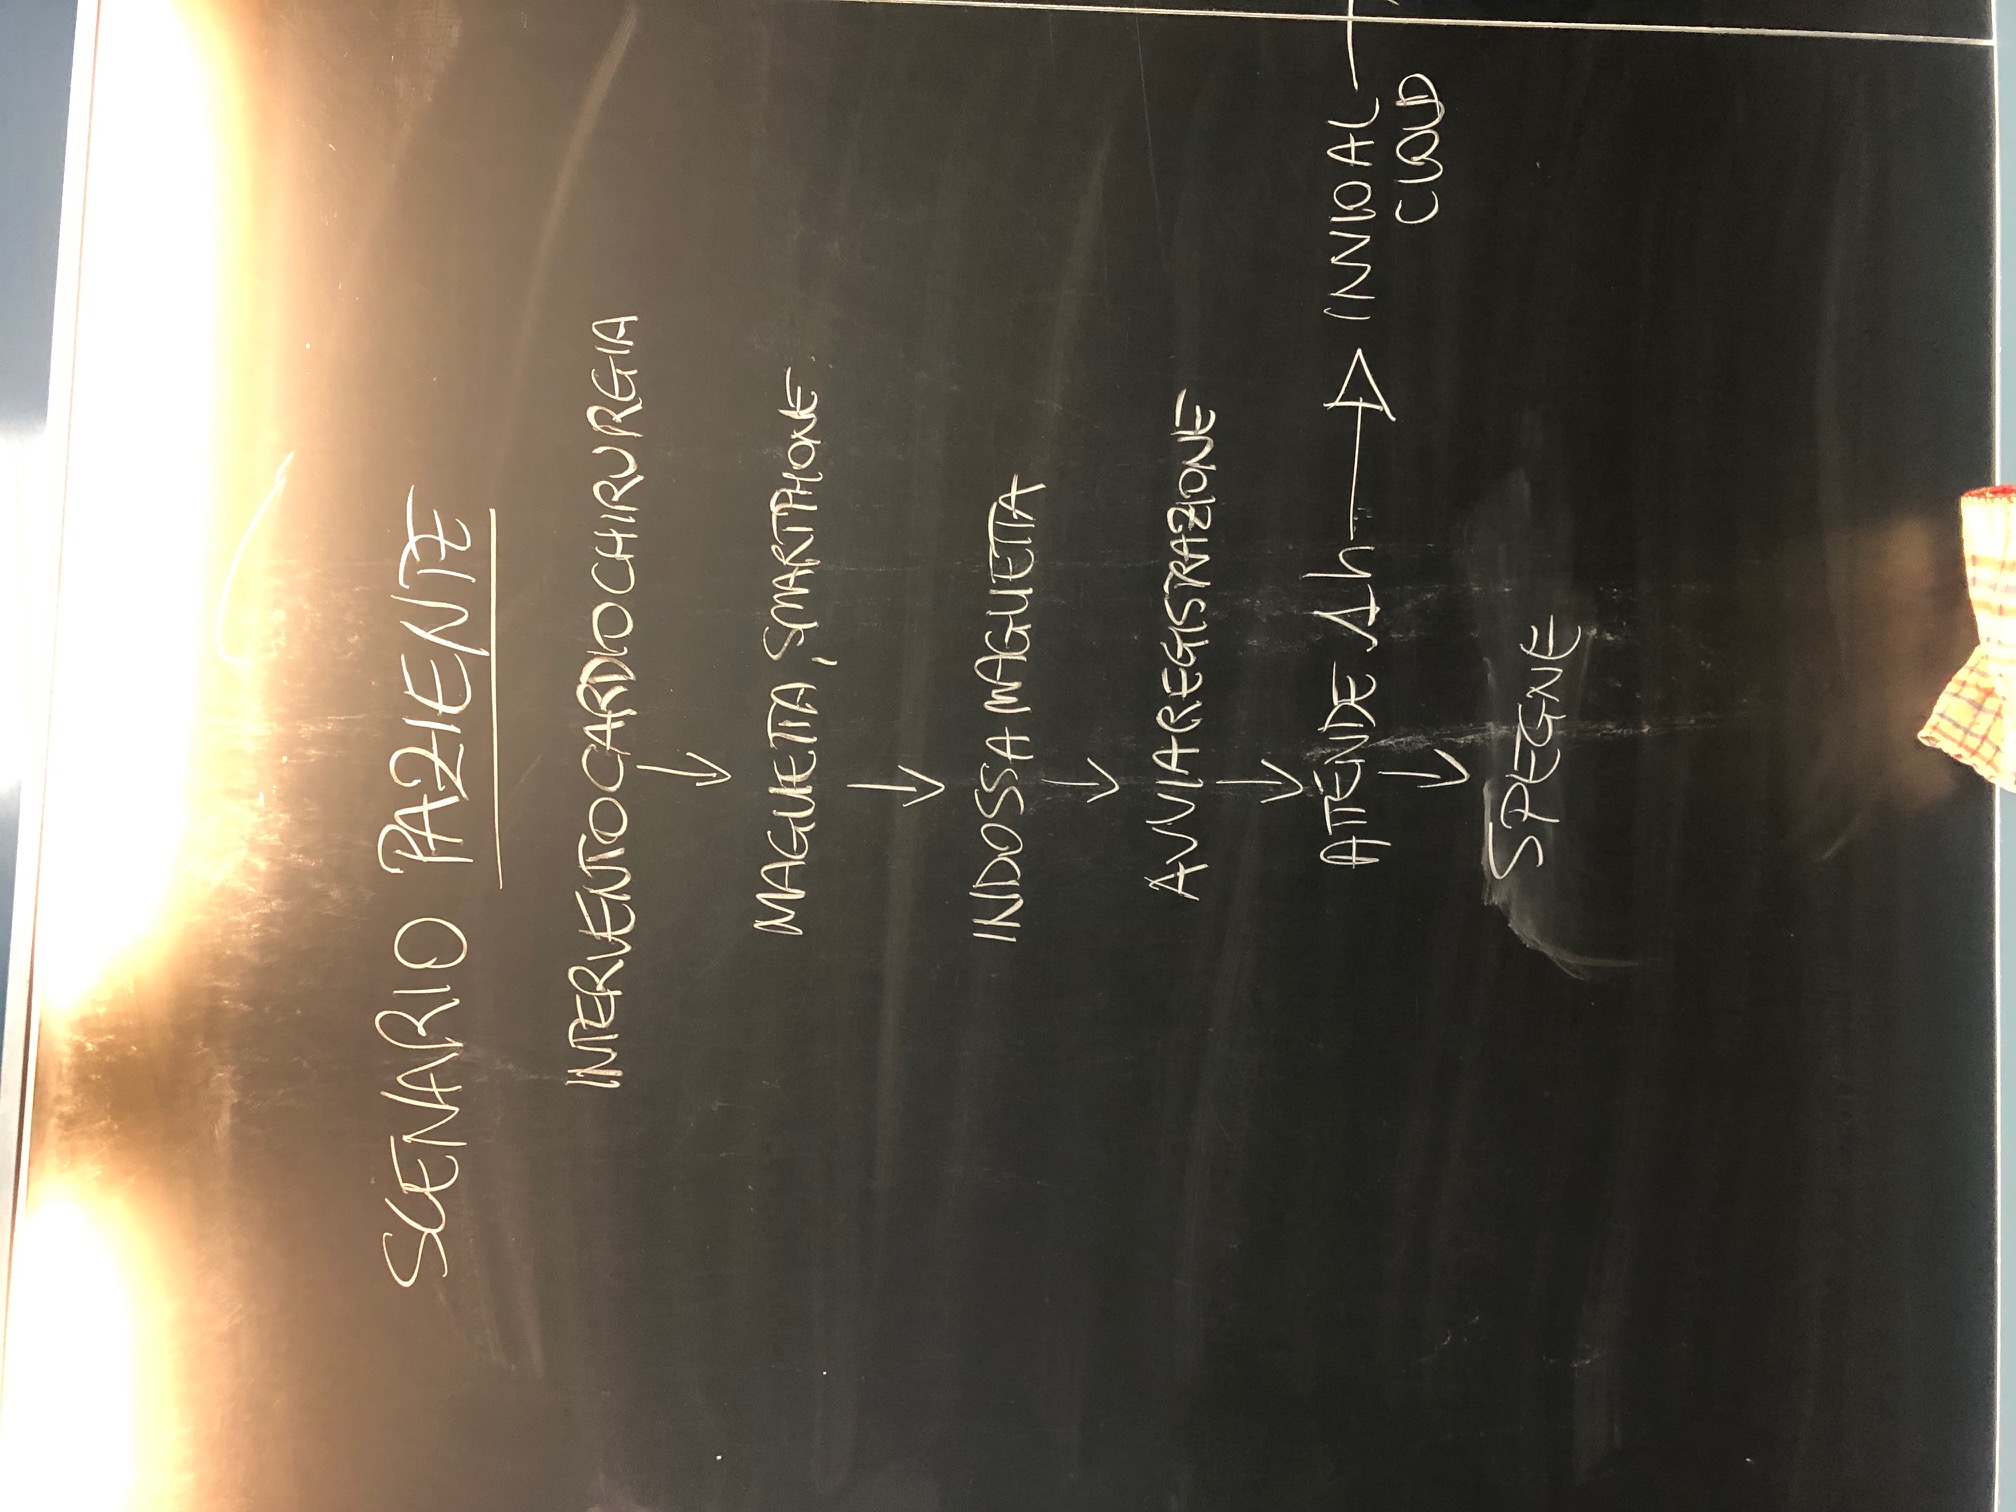 SCENARIO PAZIENTE
INTERVENTO CARDIOCHIRURGIA
↓
MAGLIETTA, SMARTPHONE
↓
INDOSSA MAGLIETTA
↓
AVVIA REGISTRAZIONE
↓
ATTENDE 1h → INVIO AL
CLOUD
↓
SPEGNE